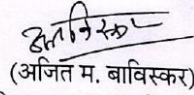 (अजित म. बाविस्कर)